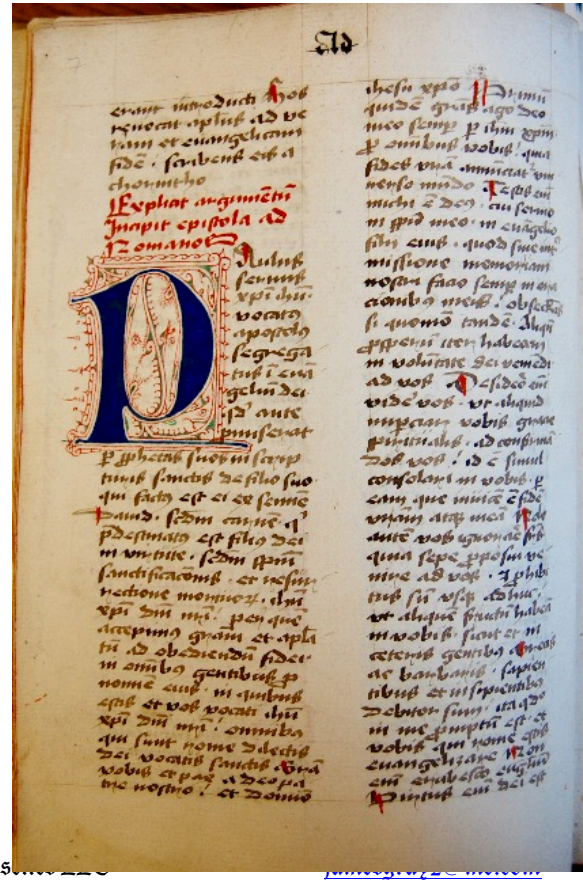 Ad
erant introducti Hos
reuocat apl̄us ad ve
ram et euangelicam
fidē · scribens eis a
chorintho
Explicit argumentū
Incipit epistola ad
Romanos
Paulus
seruus
xp̄i ih̄u ·
vocatꝰ
apostolꝰ
segrega
tus ī euā
geliū dei
qd̄ ante
promiserat
ꝑ ꝓphetas suos in scrip
turis sanctis de filio suo
qui factꝰ est ei ex semine
Dauid · scdm̄ carnē · qͥ
p̄destinatꝰ est filiꝰ dei
in virtute · scdm̄ spm̄
sanctificac̄onis · et resur
rectione mortuoꝝ · ih̄u
xp̄i dn̄i nr̄i · per quē
accepimus grām et apl̄a
tū ad obediendū fidei
in om̄ibꝰ gentibus ꝓ
nomine eius · in quibus
estis et vos vocati ih̄u
xp̄i dn̄i nr̄i · omnibꝰ
qui sunt rome dilectis
dei vocatis sanctis Grā
vobis et pax a deo pa
tre nostro · et domino
ihesu xp̄o Primū
quidē grās ago deo
meo semꝑ ꝑ ih̄m xp̄m
ꝓ omnibus vobis · quia
fides vr̄a annūciat̉ vni
uerso mūdo Testis em̄
michi ē deꝰ · cui seruio
in sp̄u meo · in euāgelio
filii eius · quod sine int̉
missione memoriam
vestri facio semꝑ in ora
cionibꝰ meis · obsecrās
si quomō tandē · Aliqn̄
ꝓsperū iter habeam
in volūtate dei veniēdi
ad vos Desidēo em̄
vidē vos · vt aliquid
impciar vobis gracie
spiritualis · ad confirmā
dos vos · id ē simul
consolari in vobis · ꝑ
eam que inuicē ē fidē
vr̄am atqꝫ meā Nolo
autē vos ignorare frs̄
quia sepe ꝓposui ve
nire ad vos · et ꝓhibi
tus sū vsqꝫ adhuc ·
vt aliquē fructū habeā
in vobis · sicut et in
ceteris gentibꝰ Grecis
ac barbaris · sapien
tibus et insipientibꝰ
debitor sum · ita qd̄
in me ꝓmptū est · et
vobis qui rome estis
euangelizare Non
em̄ erubesco euḡlm̄
Virtus em̄ dei est